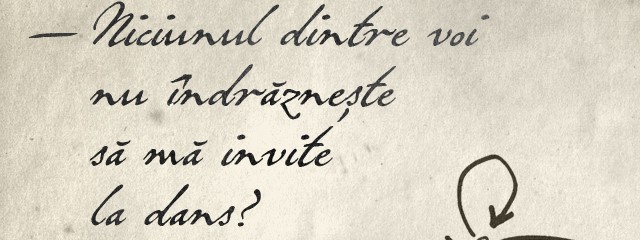 — Niciunul dintre voi
nu îndrăznește
să mă invite
la dans?